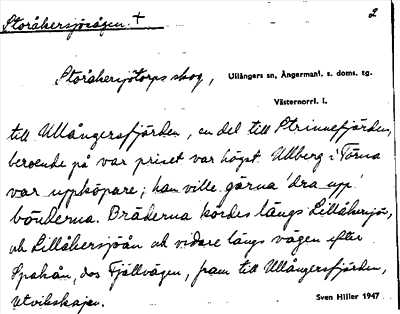 Storåkersjösågen. +
2
Storåkersjötorps skog, Ullångers sn, Ångermanl. s. doms. tg.
Västernorrl. l.
till Ullångersfjärden, en del till Strinnefjärden,
beroende på var priset var högst. Ullberg i Törna
var uppköpare; han ville gärna 'dra upp'
bönderna. Bräderna kördes längs Lillåkersjön,
och Lillåkersjöån och vidare längs vägen efter
Spakån, dvs Fjällvägen, fram till Ullångersfjärden,
Utvikskajen.
Sven Hiller 1947